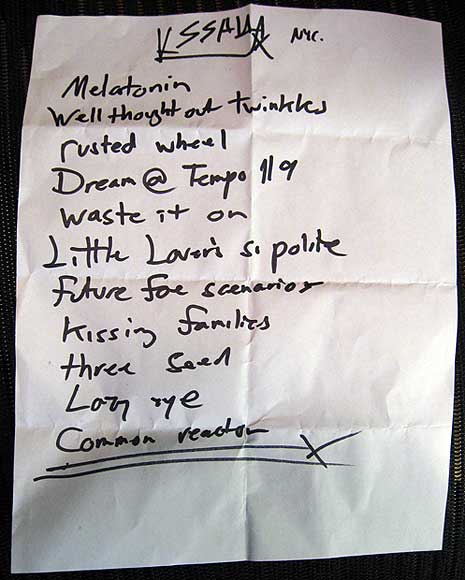 SSPU NYC.
Melatonin
Well thought out twinkles
rusted wheel
Dream @ Tempo 119
waste it on
Little Lover's so polite
future foe scenarios
Kissing families
three seed
Lazy eye
Common reactor